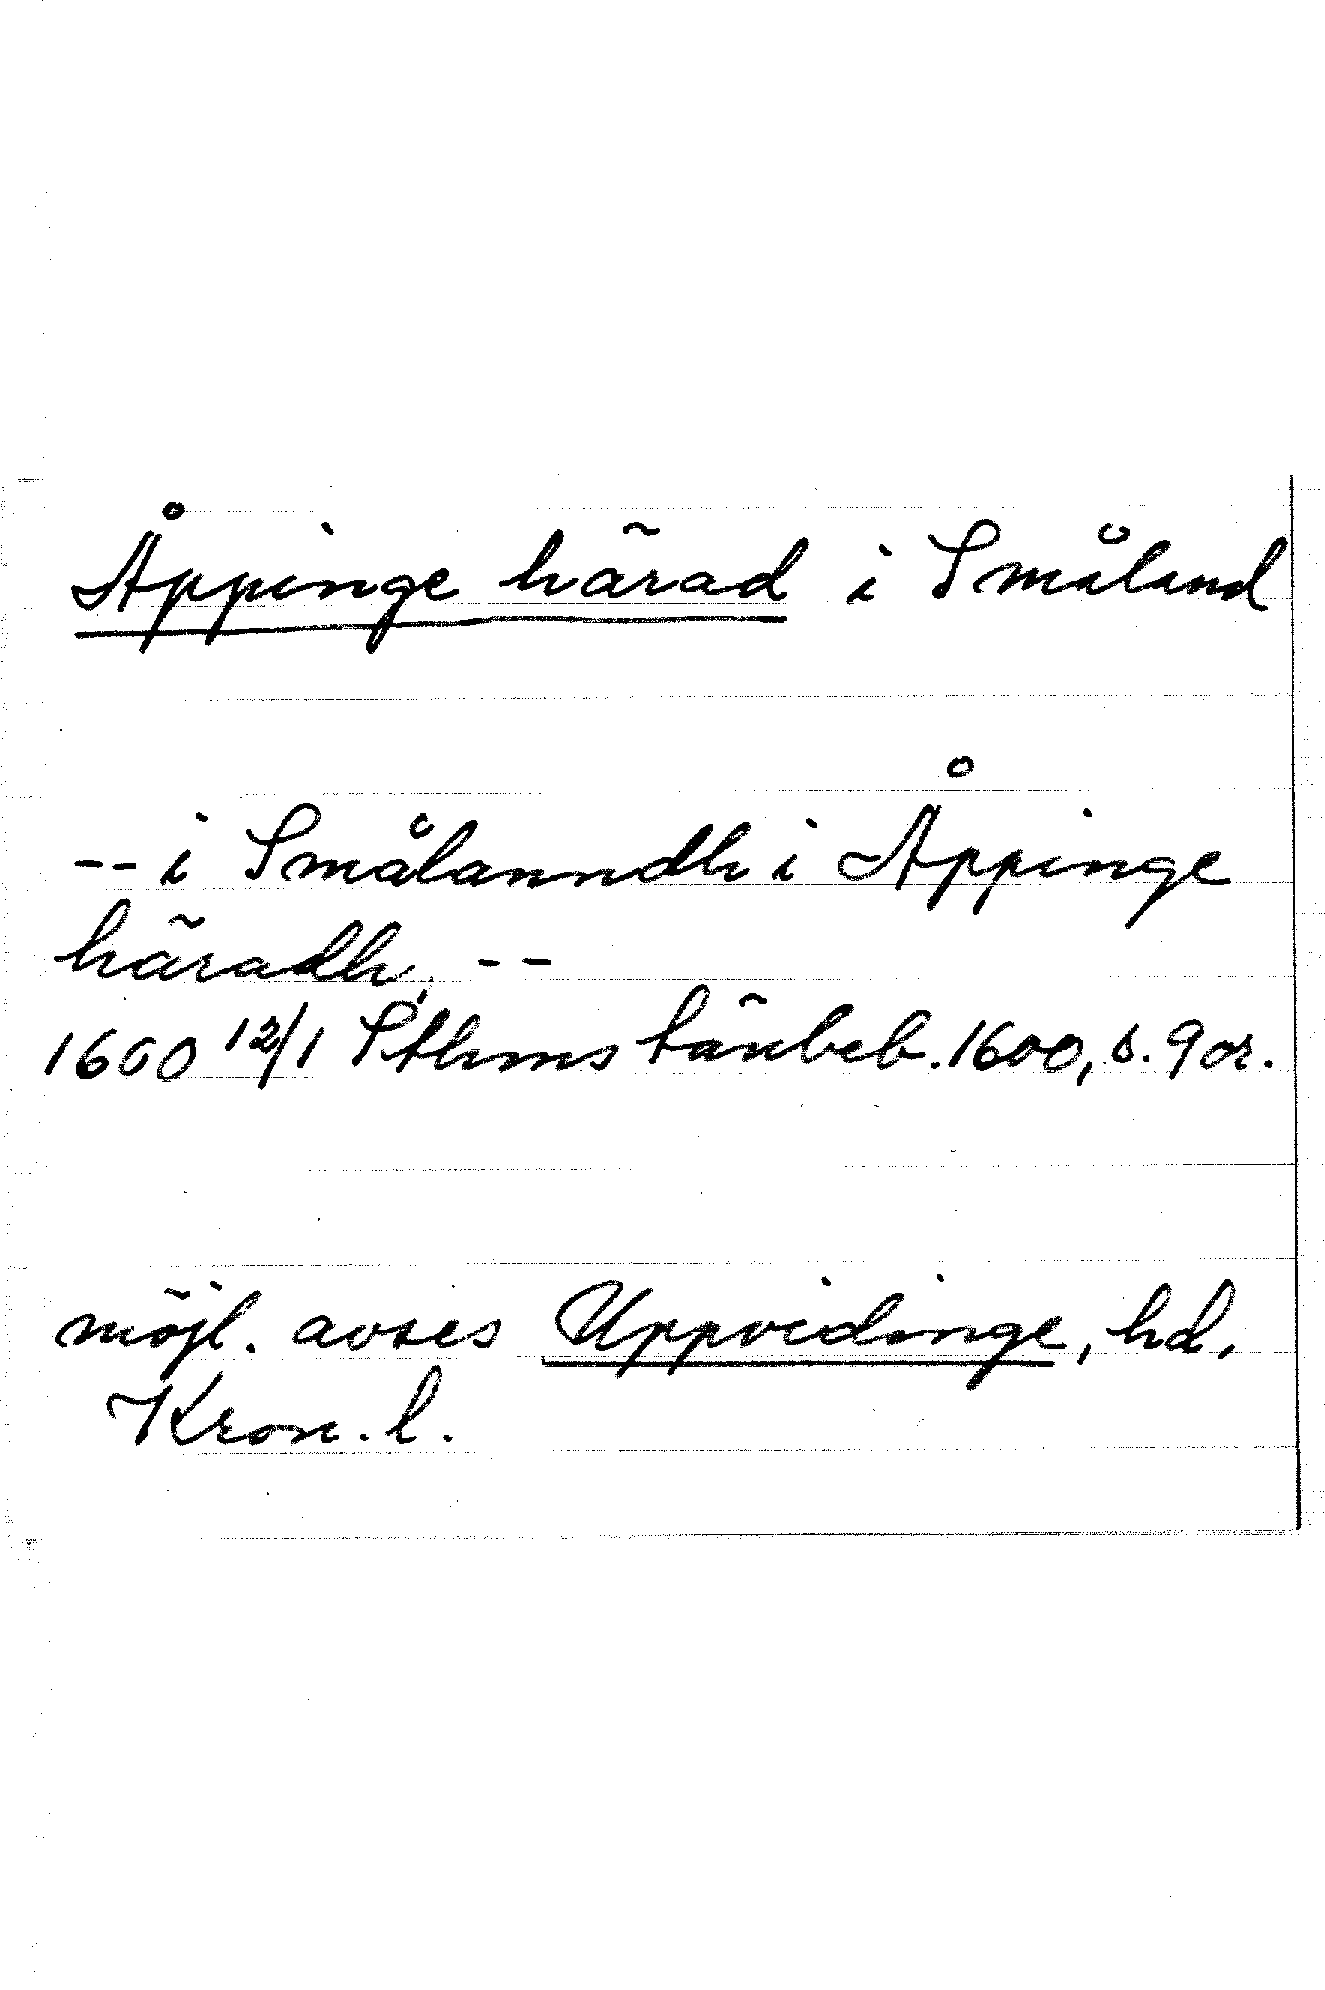 Åppinge härad i Småland
-- i Smålanndh i Åppinge
häradh, --
1600 12/1 Sthms tänkeb. 1600, s. 9 or.
möjl. avses Uppvidinge, hd,
Kron. l.